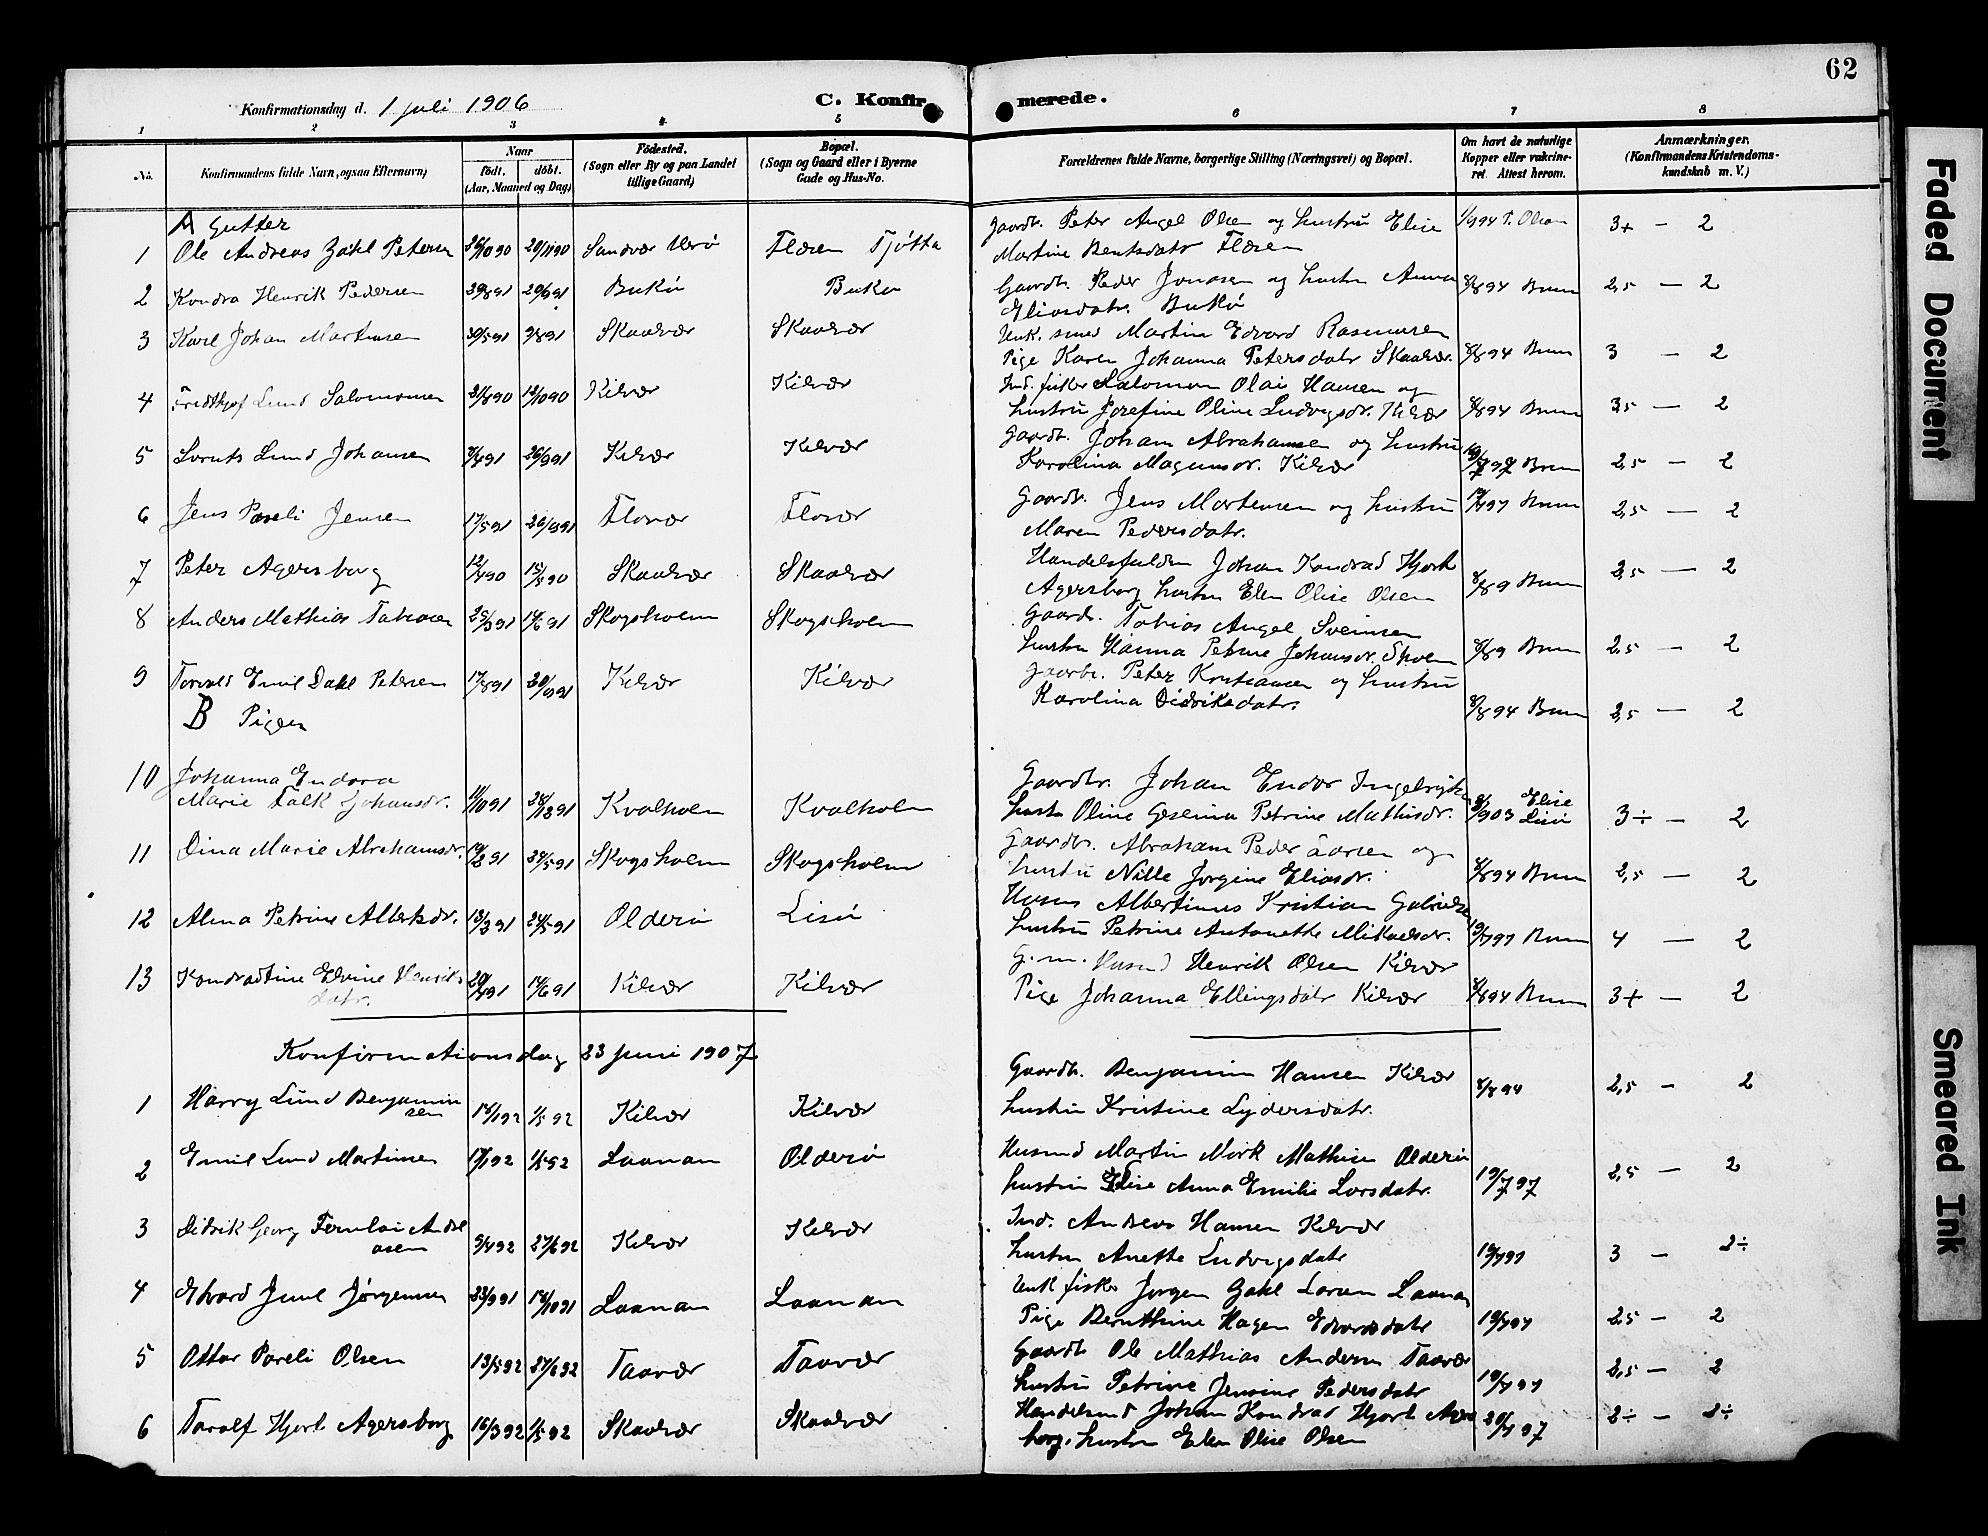 62
Konfirmationsdag d. 1 juli 1906
C. Konfirmerede.
1 2 3 4 5 6 7 8
No.
Konfirmandens fulde Navn, ogsaa Efternavn)
Naar
födt. döbt.
(Aar, Maaned og Dag)
Födested.
(Sogn eller By og paa Landet tillige Gaard)
Bopæl.
(Sogn og Gaard eller i Byerne Gade og Hus-No.
Forældrenes fulde Navne, borgerlige Stilling (Næringsvei) og Bopæl.
Om havt de naturlige Kopper eller vakcineret. Attest herom.
Anmærkninger.
(Konfirmandens Kristendomskundskab m. V.)
A Gutter
1 Ole Andreas Zahl Petersen 20/1190 Sandvær Flæsen Tjøtta Gaardb. Peter Angel Olsen og hustru Elise 3+ — 2
Martine Bentsdatr Flæsen
2 Kondra Henrik Pedersen 29/891 20/991 Bukø Bukø Gaardb. Peder Jonasen og hustru Anna 8/894 Brun 2,5 — 2
Eliasdatr. Bukø
3 Karl Johan Martinsen 30/591 9/891 Skaalvær Skaalvær Unk. smed Martin Edvard Rasmusen
Pige Karen Johanna Petersdatr Skaalvær. 8/894 Brun 3 — 2
4 Fredthjof Lund Salomonsen 31/890 12/1090 Kilvær Kilvær Ind. fisker Salomon Olai Hansen og
hustru Josefine Oline Ludvigsdr. Kilvær 8/894 Brun 3,5 — 2
5 Lund Johansen 26/991 Kilvær Kilvær Gaardb. Johan Abrahamsen og hustru
Karolina Magnusdr. Kilvær Brun 2,5 — 2
6 Jens Pareli Jensen 17/591 Flovær Flovær Gaardb. Jens Mortensen og hustru 19/797 Brun 2,5 — 2
Maren Pedersdatr.
7 Peter Agersborg 12/490 15/590 Skaalvær Skaalvær Johan Kondrad Hjort
Agersborg hustru Elen Olise Olsen 8/89 Brun 2,5 — 2
8 Anders Mathias Tobiasen 25/391 14/691 Skogsholm Skogsholm Gaardb. Tobias Angel Sveinsen
hustru Hanna Petrine Johansdr. 8/89 Brun 2,5 — 2
9 Torvald Emil Dahl Petersen 17/891 Kilvær Kilvær Gaardb. Peter Kristiansen og hustru
Karolina Didriksdatr. 8/894 Brun 2,5 — 2
B Piger
10 Johanna Endora
Marie Falk Johansdr. 11/1091 28/1291 Kvalholm Kvalholm Gaardbr. Johan Endor
hustr Oline Gesina Petrine Mathisdr. Elise 3÷ — 2
11 Dina Marie Abrahamsdr. 19/291 24/591 Skogsholm Skogsholm Gaardbr. Abraham Peder og
hustru Nille Jørgine Eliasdr. 8/894 Brun 2,5 — 2
12 Alma Petrine Albertsdr. 13/391 24/591 Olderø Lisø Albertinus Kristian
hustru Petrine Antonette Mikaelsdr. 19/797 Brun 4 — 2
13 Kondradtine Elvine Henriksdatr. 20/491 14/691 Kilvær Kilvær G.m. Husmd Henrik Olsen Kilvær
Pige Johanna Ellingsdatr Kilvær 8/894 Brun 3+ — 2
Konfirmationsdag 23 juni 1907
1 Harry Lund Benjaminsen 18/192 1/592 Kilvær Kilvær Gaardb. Benjamin Hansen Kilvær 8/894 2,5 — 2
hustru Kristine Lydersdatr.
2 Emil Lund Martinsen 17/192 1/592 Laanan Olderø Husmd Martin Mørk Mathisen Olderø
hustru Elise Anna Emilie Larsdatr. 19/797 2,5 — 2
3 Didrik Georg Andreasen 9/492 27/692 Kilvær Kilvær Ind. Andreas Hansen Kilvær
hustru Anette Ludvigsdatr 19/797 3 — 2÷
4 Edvard Juul Jørgensen 23/991 18/1091 Laanan Laanan Unk fisker Jørgen Zahl Larsen Laanan
Pige Bernthine Hagen Edvardsdatr 19/797 2,5 — 2
5 Ottar Pareli Olsen 13/592 27/692 Taavær Taavær Gaardb Ole Mathias Andersen Taavær
hustru Petrine Jensine Pedersdatr 19/797 2,5 — 2
6 Toralf Hjort Agersborg 16/392 1/592 Skaalvær Skaalvær Handelsmd Johan Kondrad Hjort Agersborg, hustru Elen Olise Olsen 20/797 2÷ — 2÷
Faded Document
Smeared Ink